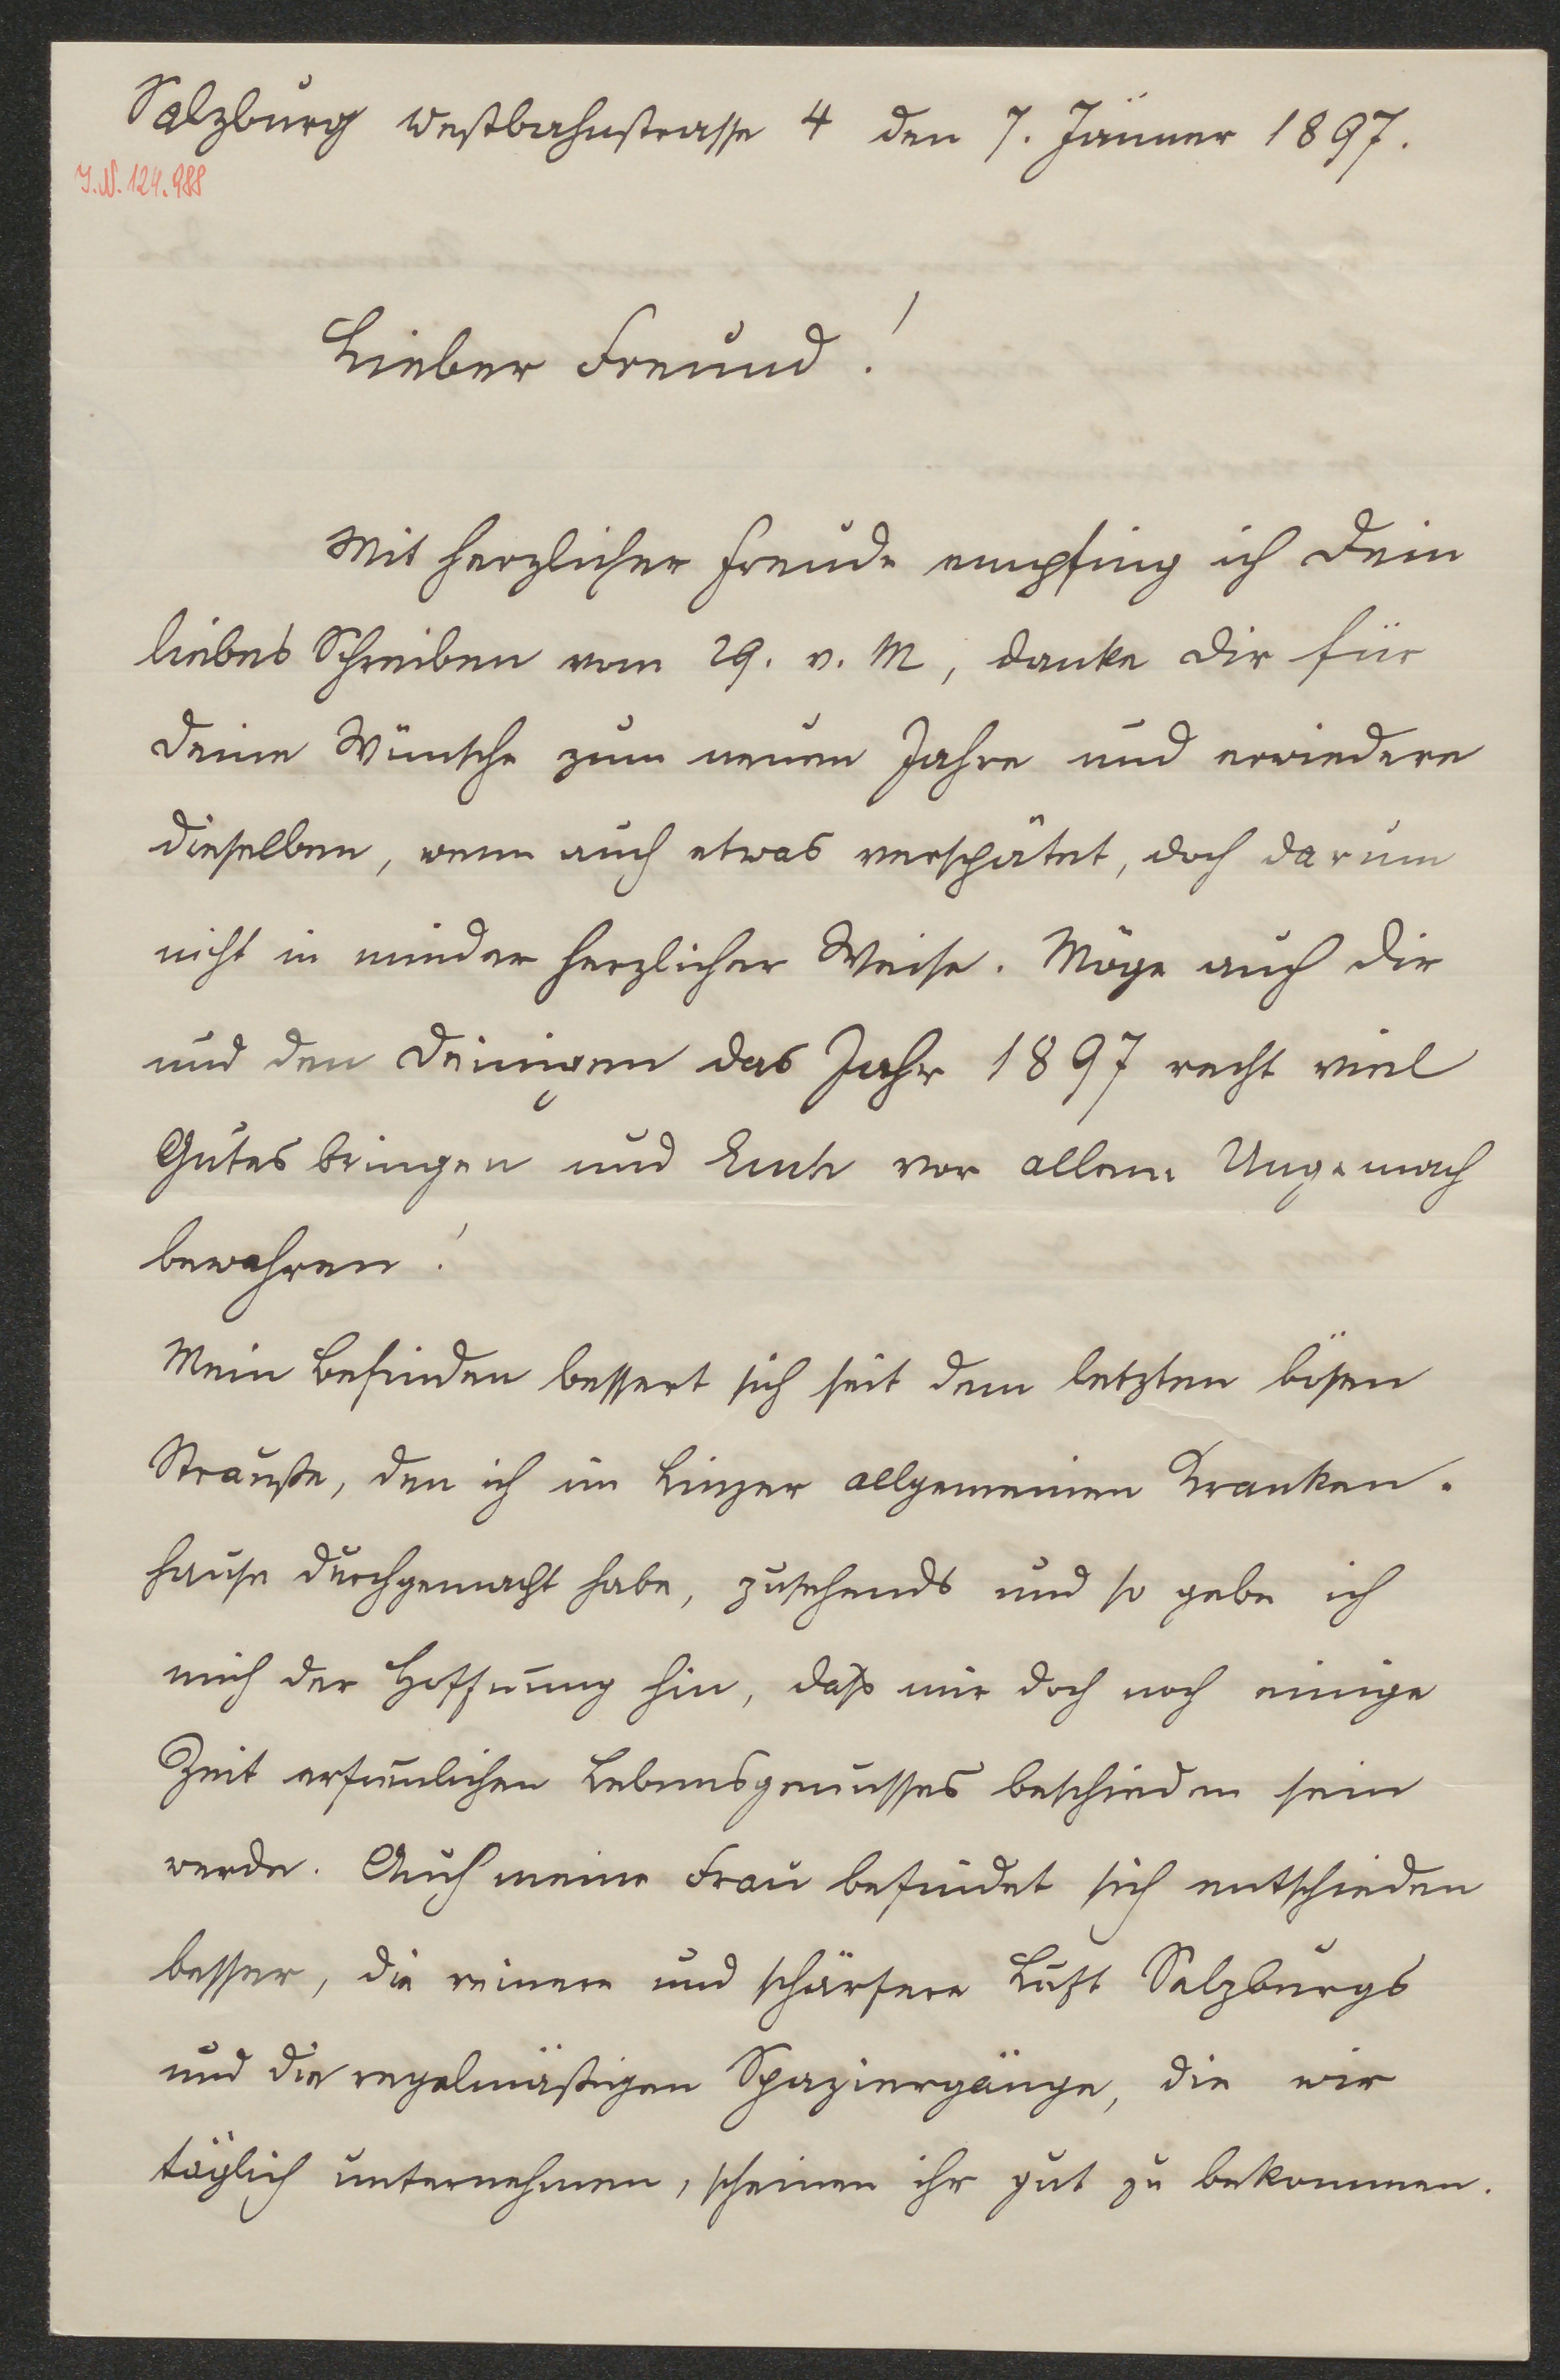 Salzburg Westbahnstrasse 4 den 7. Jänner 1897.
I.N. 124.988
Lieber Freund!
Mit herzlicher Freude empfing ich Dein
liebes Schreiben vom 29. v. M, danke Dir für
Deine Wünsche zum neuen Jahre und erwiedere
dieselben, wenn auch etwas verspätet, doch darum
nicht in minder herzlicher Weise. Möge auch Dir
und den Deinigen das Jahr 1897 recht viel
Gutes bringen und Euch vor allem Ungemach
bewahren!
Mein Befinden bessert sich seit dem letzten bösen
Strauße, den ich im Linzer allgemeinen Kranken-
hause durchgemacht habe, zusehends und so gebe ich
mich der Hoffnung hin, daß mir doch noch einige
Zeit erfreulichen Lebensgenusses beschieden sein
werde. Auch meine Frau befindet sich entschieden
besser, die reinere und schärfere Luft Salzburgs
und die regelmäßigen Spaziergänge, die wir
täglich unternehmen, scheinen ihr gut zu bekommen.